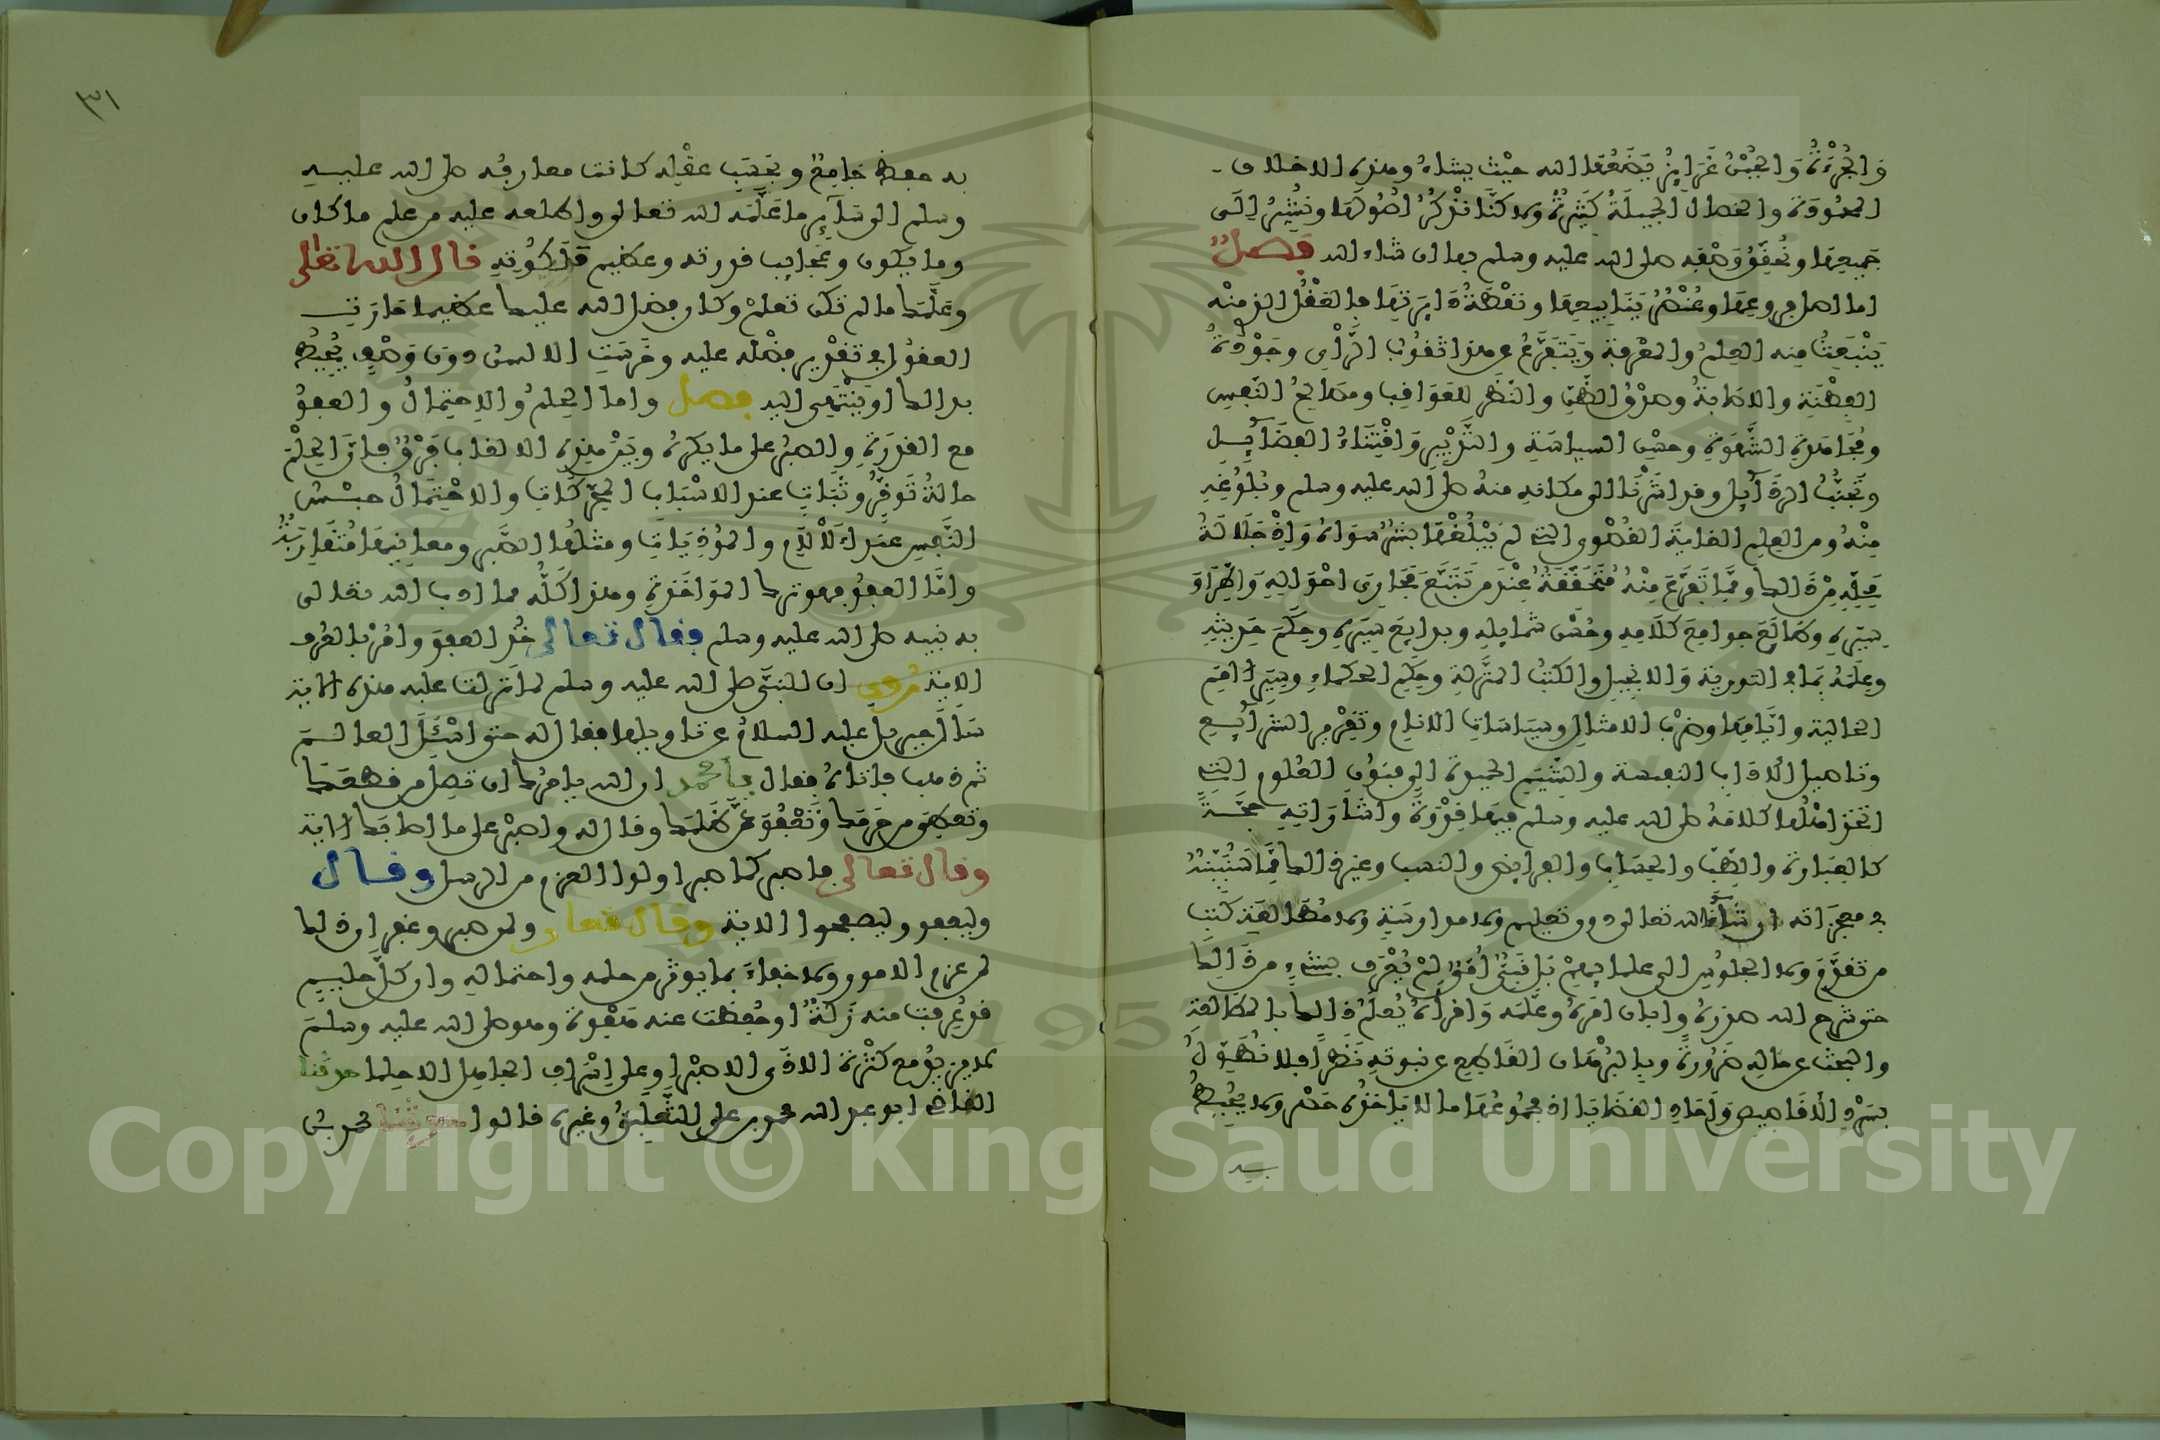 وَالْجُرْءَةُ وَالْجُبْنُ غَرَايِزُ يَضَعُهَا اللّه حَيْث يشاءُ وهذه الاخلاق
المحمودة والخصال الجميلَةُ كَثِيْرةٌ ولاكنَّا نذْكُرُ اُصُولَهَا ونُشِيرُ اِلَى
جَمِيعِهَا ونُحَقِّقُ وَصْفِه صلى الله عليه وسلم بها ان شاء الله فصل
اما اصل فروعها وعُنْصُرُ يَنَابِيعِهَا ونقْطَةُ دَايِرَتِهَا فالعَقْلُ الذي منْه
يَنْبَعِثُ مِنه العِلْمُ والمعْرِفة ويَتَفَرَّعُ عن هذا ثقُوبُ الرَّأْيِ وجَوْدَةُ
الفِطْنَةِ والاصَابةُ وصدْقُ الظَّنِّ والنَّظَر للعَوَاقِب ومصَالِحُ النَّفسِ
ومُجَاهدة الشَّهوَةِ وحسْن السياسَةِ والتَّدْبِيرِ وَاقْتِنَاءُ الفضَآيِل
وتجنُّبُ الرذَآيِل وقد اشَرْنَا الى مكانهِ منهُ صلى الله عليه وسلم وبُلُوغِهِ
مِنْهُ ومن العِلمِ الغايَةَ القُصْوى التي لم يَبْلُغْهَا بشَرٌ سِوَاهُ وَاِذْ جَلَالَةُ
مَحَلِّهِ مِنْ ذَالك ومِمَّا تَفَرَّعَ مِنْهُ مُتَحَقَّقَةٌ عِنْدَ من تَتَبَّعَ مَجَارِىَ احْوَالِهِ وَاطِّرَادَ
سِيَرِهِ وطَالَعَ جوامِعَ كَلَامِهِ وحُسْن شمايِلِهِ وبدايِعَ سِيَرِهِ وحِكَمَ حَدِيثِهِ
وعِلْمَهُ بِمَا فِي التورية والانجِيلِ والكتُبِ المنَزَّلةِ وحِكَمِ الحكماءِ وسِيَرِ الامَمِ
الخالية وايَّامِهَا وضَرْبِ الامثالِ وسِيَاسَاتِ الانامِ وتقرِيرِ الشرآيِع
وتاصيل الادَابِ النفيسة والشِّيَمِ الحميدة الى فنُونِ العُلومِ التي
اتخذ اهْلُهَا كلامَهُ صلى الله عليه وسلم فيهَا قِدْوَةً واشَارَاتِهِ حجَّةً
كالعِبَارة والطِّبِّ والحِسَابِ والفرايِضِ والنسب وغير ذالك مِمَّا سَنُبَيِّنهُ
في معجزاته ان شآء الله تعالى دون تعليم ولا مدارسَةٍ ولا مُطَالعَةِ كتُب
من تقدَّمَ ولا الجلوسِ الى علمآيِهِمْ بَلْ نَبِيٌّ اُمِّيٌّ لمْ يُعْرَفْ بشئ من ذَالِكَ
حتى شرح الله صدرهُ وابان امرَهُ وعلَّمَه وَاقرأَهُ يُعلَمُ ذالك بالمطَالعَة
والبَحْث عن حالِهِ ضَرُورةً وبالبُرْهَانِ القَاطِعِ عن نبوتِهِ نَظَراً فلا نُطَوِّلُ
بسَرْدِ الاقَاصِيصِ وَآحَادِ القضَايَا اذ مجْمُوعُهَا ما لا يَاخذُه حَصْر ولا يُحِيطُ
به
٣١
به حفظ جَامِعٌ وبحَسَبِ عقْلِه كانت معارفه صلى الله عليه
وسلم الى سَآيِرِ ما عَلَّمَه الله تعالى واطلعه عليه من علم ما كان
وما يكون وعَجَايِبِ قدرته وعظيم مَلَكُوتِهِ قال الله تعلى
وعلَّمَك ما لم تكن تعلمْ وكان فضل الله عليك عظيما حَارَتِ
العقُول في تقْدِيرِ فضْلِه عليه وخَرِسَتِ الالسُن دون وَصْفٍ يُحِيطُ
بذالك او يَنْتَهِى اليه فصل واما الحِلمُ والاحتِمالُ والعفوُ
مع القدرَةِ والصبْرُ على ما يكرَهُ وبَيْن هذِه الالقاب فَرْقٌ فاِنَّ الحِلْمَ
حالةُ تَوَقُّرٍ وثَبَاتٍ عند الاسْبَابِ المحَرِّكَاتِ والاحْتِمَالُ حبْسُ
النَّفسِ عندَ الآلَامِ والموُذِيَاتِ ومثلُهَا الصَّبر ومعانِيهَا مُتَقَارِبَةٌ
وامَّا العفْوُ فهو ترك المُوَاخَذَةِ وهذا كُلُّه مما ادب الله تعالى
به نبيه صلى الله عليه وسلم فقال تعالى خُذِ العفوَ وامُرْ بالعُرف
الايَة رُوِيَ ان النبىَّ صلى الله عليه وسلم لما نَزلت عليه هذه الاية
سَأل جبريل عليه السلامُ عن تاويلها فقال له حتى اسْئَلَ العالِمَ
ثم ذهب فاتاهُ فقال يا محمد ان الله يامرُك ان تصِل من قطعَك
وتعطِىَ من حَرَمَك وَتَعْفُوَ عمَّن ظَلَمَك وقال له واصبرْ على ما اصابَك الاية
وقال تعالى فاصبر كما صبر اولوا العزم من الرسل وقال
وليعفو وليصفحوا الاية وقال تعالى ولمن صبر وغفر ان ذلك
لمن عزم الامور ولا خفاءَ بما يوثر من حلمه واحتماله وان كلَّ حليمٍ
قد عُرِفت منه زَلةٌ او حُفِظت عنه هَفْوة وهو صلى الله عليه وسلمَ
لا يزيدُ مع كثْرة الاذى الا صَبْرا وعلى اِسْرافِ الجاهل الا حلما حدثنا
القاضى ابو عبد الله محمد بن على التَّغلِبِىُّ وغيره قالوا حدثنا محمد بن